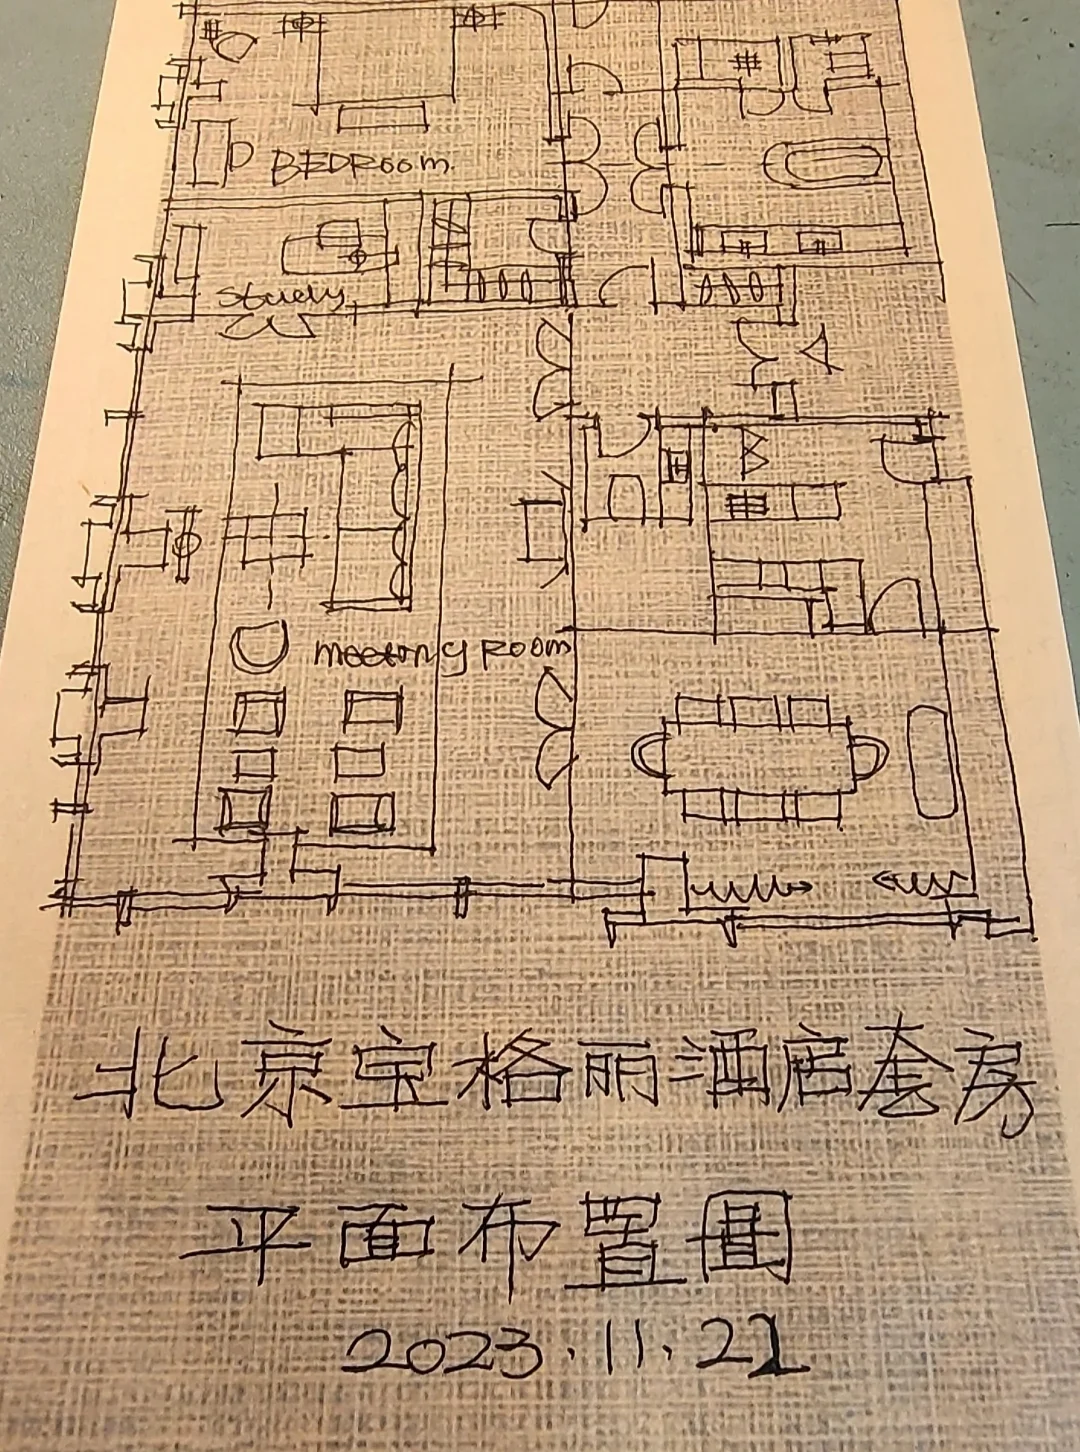 BEDRoom.
study
meetong Room
北京宝格丽酒店套房
平面布置圖
2023.11.22